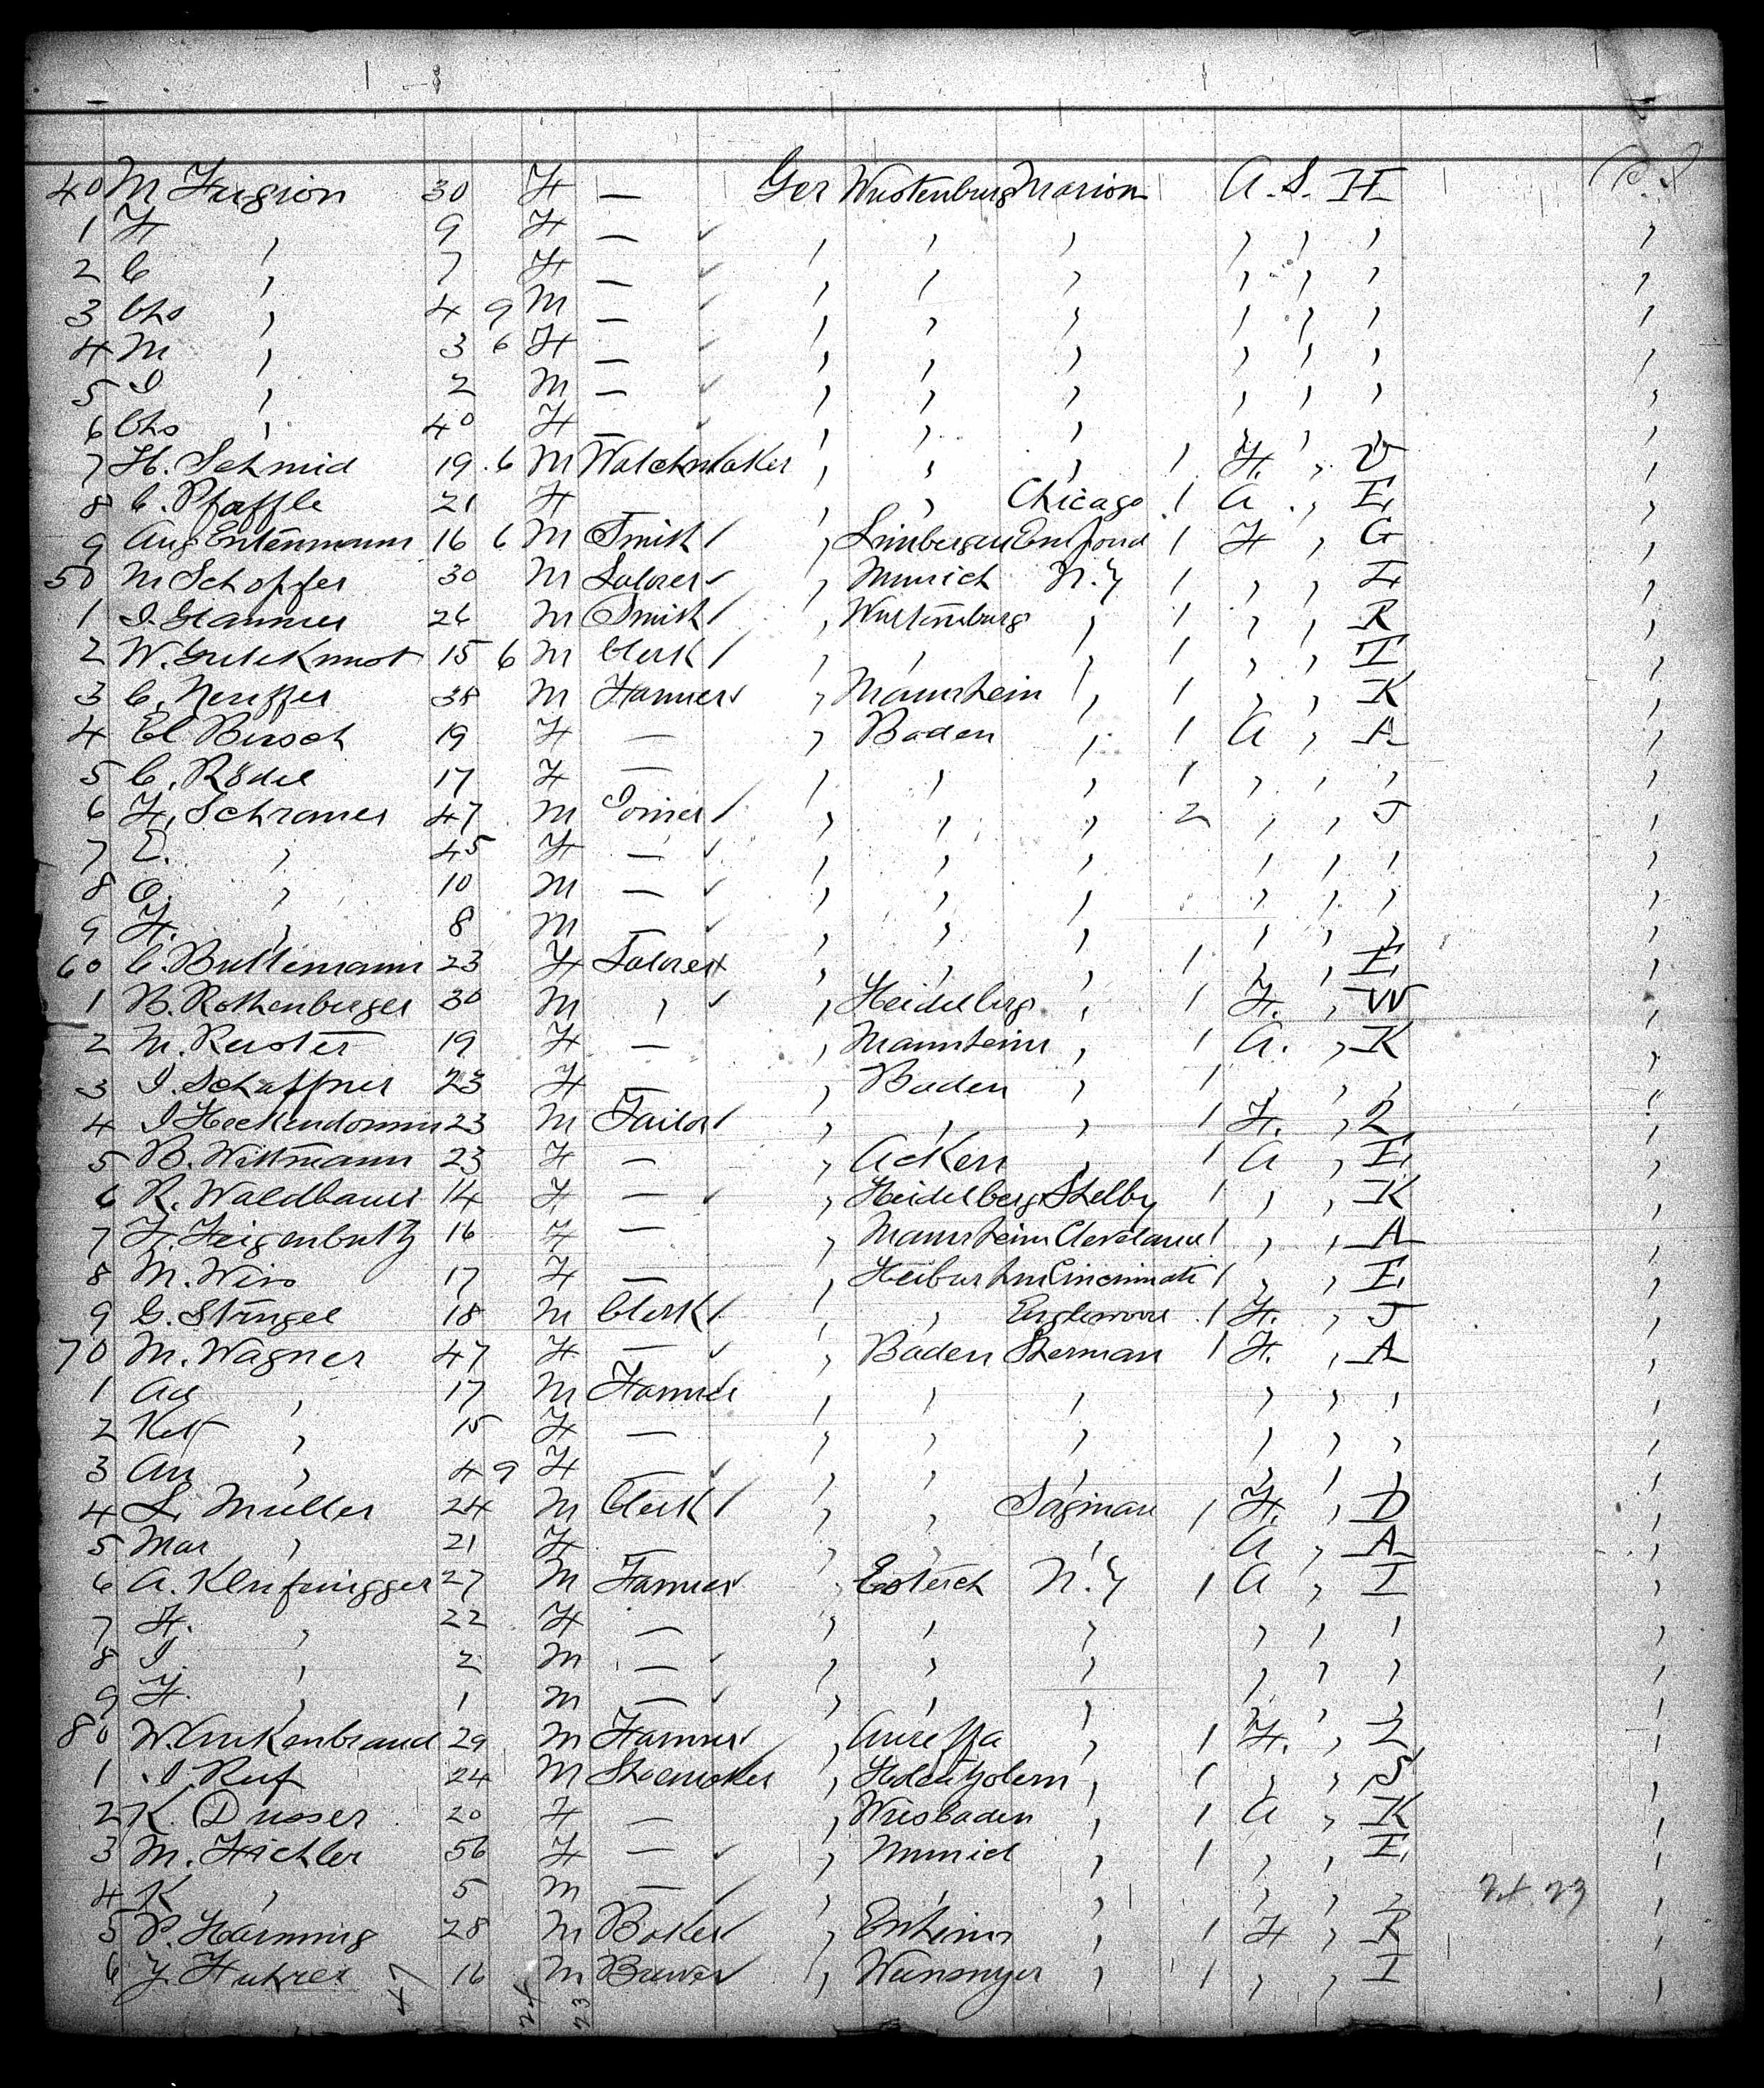 40 M Fugion 30 F — Ger Wurtenburg Marion A. S. H
1 F , 9 F — , , , , , , ,
2 C , 7 F — , , , , , , ,
3 Chs , 4 9 M — , , , , , , ,
4 M , 3 6 F — , , , , , , ,
5 I , 2 M — , , , , , , ,
6 Chs , 40 F — , , , , , , ,
7 H. Schmid 19 .6 M Watchmaker , , , 1 F. , V ,
8 C. Pfaffle 21 F , , Chicago 1 A , E ,
9 Aug Entenmann 16 6 M Smith , 1 F , G ,
50 M Schopfer 30 M Laborer , Munich N.Y 1 , , L ,
1 26 M Smith , Wurtemburg , 1 , , R ,
2 W. Gutekunst 15 6 M Clerk , , , 1 , , I ,
3 C. Neuffer 38 M Farmer , Mannheim , 1 , , K ,
4 El Bersch 19 F — , Baden , 1 A , A ,
5 C. Rödel 17 F — , , , 1 , , , ,
6 F. Schramer 47 M Joiner , , , 2 , , J ,
7 E. , 45 F — , , , , , , ,
8 O. , 10 M — , , , , , , ,
9 F. , 8 M — , , , , , , ,
60 C. Bullemann 23 F Laborer , , , 1 , , E ,
1 B. Rothenberger 30 M , , Heidelberg , 1 F. , W ,
2 M. Reuster 19 F — , Mannheim , 1 A. , K ,
3 I. Schaffner 23 F — , Baden , 1 , , , ,
4 I Heckendornn 23 M Tailor , , , 1 F. , Z ,
5 B. Wittmann 23 F — , Ackern , 1 A , E ,
6 R. Waldbauer 14 F — , Heidelberg Shelby 1 , , K ,
7 F. Feigenbutz 16 F — , Mannheim Cleveland 1 , , A ,
8 M. Wirs 17 F — , Cincinnati 1 , , E ,
9 G. Stengel 18 M Clerk , , Englewood 1 F. , J ,
70 M. Wagner 47 F — , Baden Sherman 1 F. , A ,
1 Ad , 17 M Farmer , , , , , , ,
2 Kat , 15 F — , , , , , , ,
3 An , 4 9 F — , , , , , , ,
4 L. Müller 24 M Clerk , , Saginau 1 F. , D ,
5 Mar , 21 F — , , , A , A ,
6 A. Klufnigger 27 M Farmer , Esterch N.Y 1 A , I ,
7 F. , 22 F — , , , , , , ,
8 I. , 2 M — , , , , , , ,
9 F. , 1 M — , , , , , , ,
80 29 M Farmer , , 1 F. , Z ,
1 I. Ruf 24 M Shoemaker , Hohenzolern , 1 , , S ,
2 K. Dusser 20 F — , Wiesbaden , 1 A , K ,
3 M. Fichler 56 F — , Munich , 1 , , E ,
4 K , 5 M — , , , , , , ,
5 P. Harming 28 M Baker , , 1 F , R ,
6 J. Fuhrer 16 M Brewer , , 1 , , I ,
47 24 23